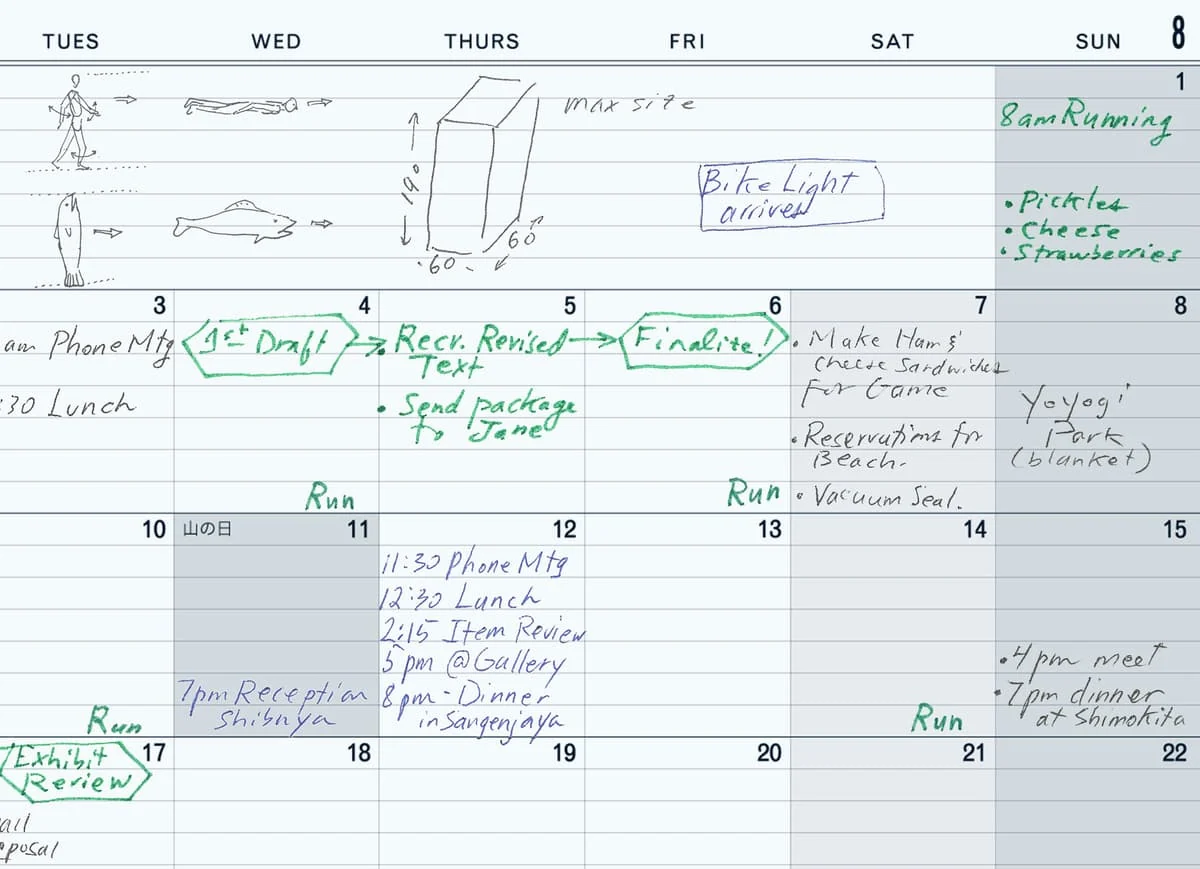 TUES
WED
THURS
FRI
SAT
SUN
8
max site
190
60
60
Bike Light
arrives
1
8am Running
• Pickles
• Cheese
• Strawberries
3
am Phone Mtg
:30 Lunch
4
1st Draft
Run
5
• Recv. Revised
Text
• Send package
to Jane
6
Finalize!
Run
7
• Make Ham &
Cheese Sandwiches
For Game
• Reservations for
Beach.
• Vacuum Seal.
8
Yoyogi
Park
(blanket)
10
Run
山の日
11
7pm Reception
Shibuya
12
11:30 Phone Mtg
12:30 Lunch
2:15 Item Review
5pm @Gallery
8pm - Dinner
in Sangenjaya
13
14
Run
15
• 4pm meet
• 7pm dinner
at Shimokita
17
Exhibit
Review
18
19
20
21
22